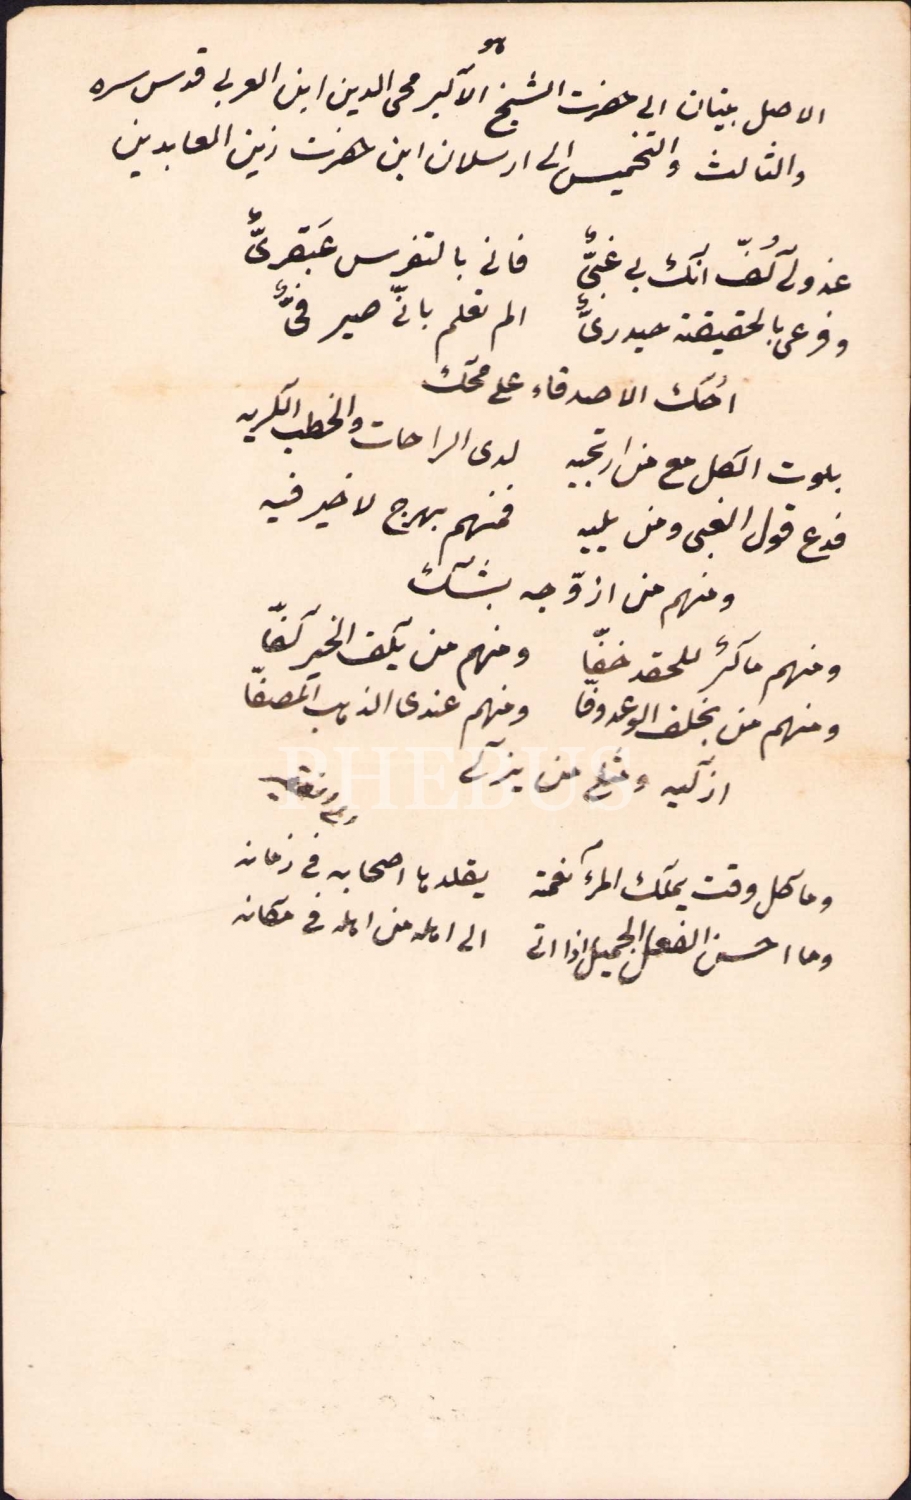 هو
الاصل بيتان الى حضرت الشيخ الأكبر محى الدين ابن العربى قدس سره
والثالث والتخميس الى ارسلان ابن حضرت زين العابدين
عذولى كُفّ انك بى غبىٌّ فانى بالتفرس عَبقرىٌّ
وفرعى بالحقيقة حيدرىٌّ الم تعلم بانّى صيرفىٌّ
احُك الاصدقاء على محك
بلوت الكل مع من ارتجيه لدى الراحات والخطب الكريه
فدع قول الغبى ومن يليه فمنهم بهرج لا خير فيه
ومنهم من ازوّجه بشك
ومنهم ماكرٌ للحقد خفّا ومنهم من يكف الخير كفّا
ومنهم من بخلف الوعد وفّا ومنهم عندى الذهب المصفّا
ازكيه ومثلى من يزكى
PHEBUS
وما كل وقت يملك المرء نعمة يقلدها اصحابه فى زمانه
وما احسن الفعل الجميل اذا اتى الى اهله من اهله فى مكانه